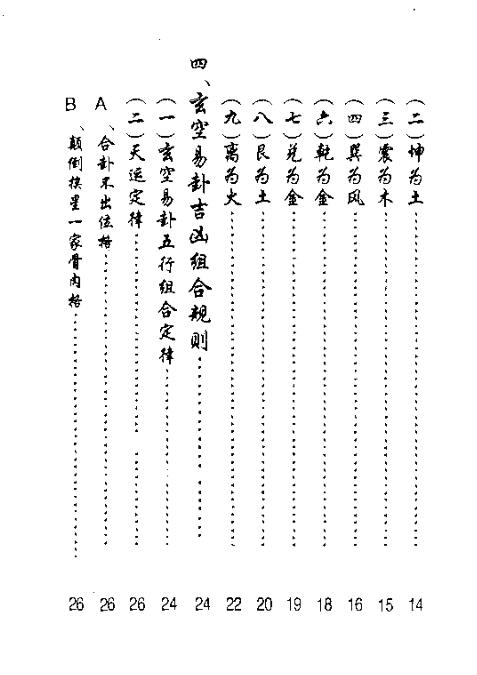 (二)坤为土……14
(三)震为木……15
(四)巽为风……16
(六)乾为金……18
(七)兑为金……19
(八)艮为土……20
(九)离为火……22
四、玄空易卦吉凶组合规则……24
(一)玄空易卦五行组合定律……24
(二)天运定律……26
A、合卦不出位格……26
B、颠倒挨星一家骨肉格……26